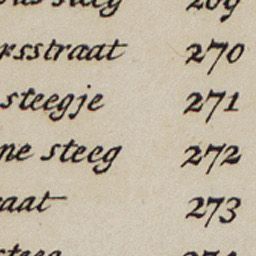 steeg 269
rsstraat 270
steegje 271
ne steeg 272
aat 273
steeg 274